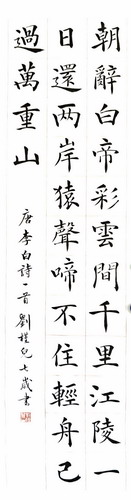 朝辭白帝彩雲間千里江陵一
日還两岸猿聲啼不住輕舟已
過萬重山
唐李白詩一首劉樸兒七歲書